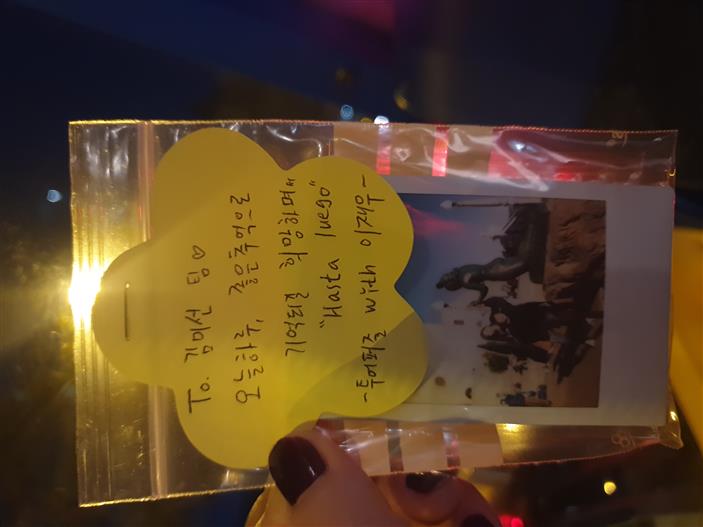 To. 김미선 팀♡
오늘하루, 젊은추억으로
기억되길 희망하며"
"Hasta luego"
-투어퍼즐 with 이재우-